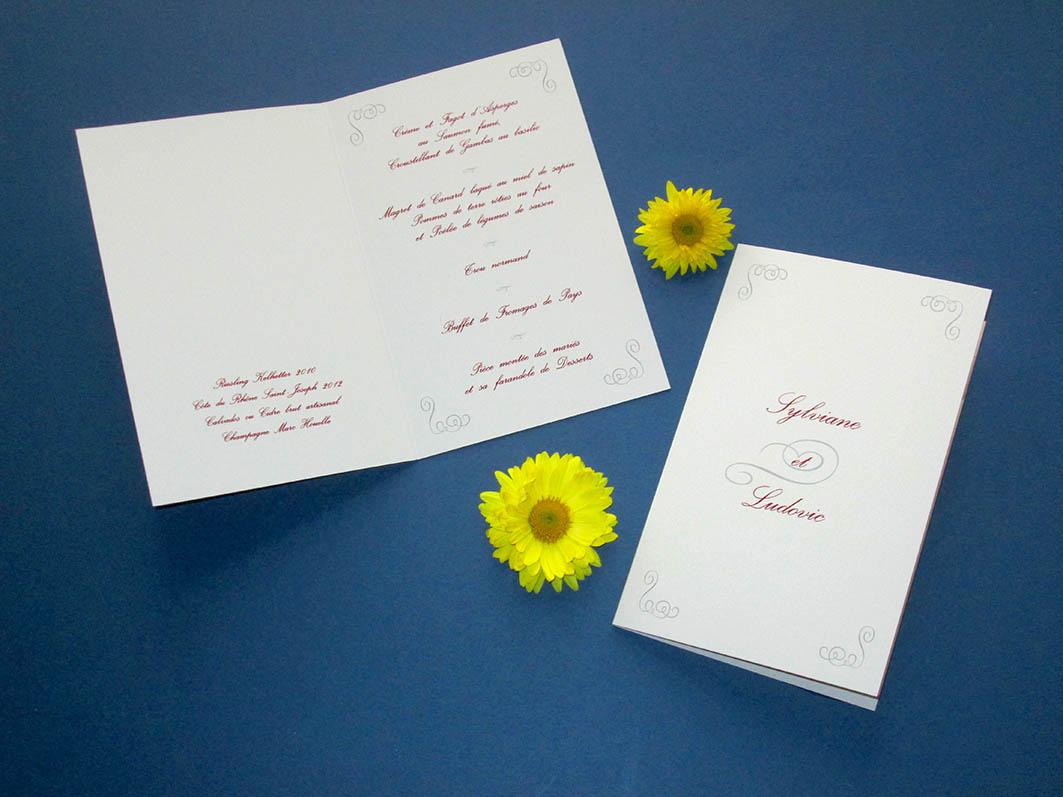 Crème et Fagot d'Asperges
au Saumon fumé,
Croustellant de Gambas au basilic
Magret de Canard laqué au miel de sapin
Pommes de terre rôties au four
et Poêlée de légumes de saison
Trou normand
Buffet de Fromages de Pays
Pièce montée des mariés
et sa farandole de Desserts
Riesling Kelhetter 2010
Côts du Rhône Saint Joseph 2012
Calvados ou Cidre brut artisanal
Champagne Marc Houelle
Sylviane
et
Ludovic